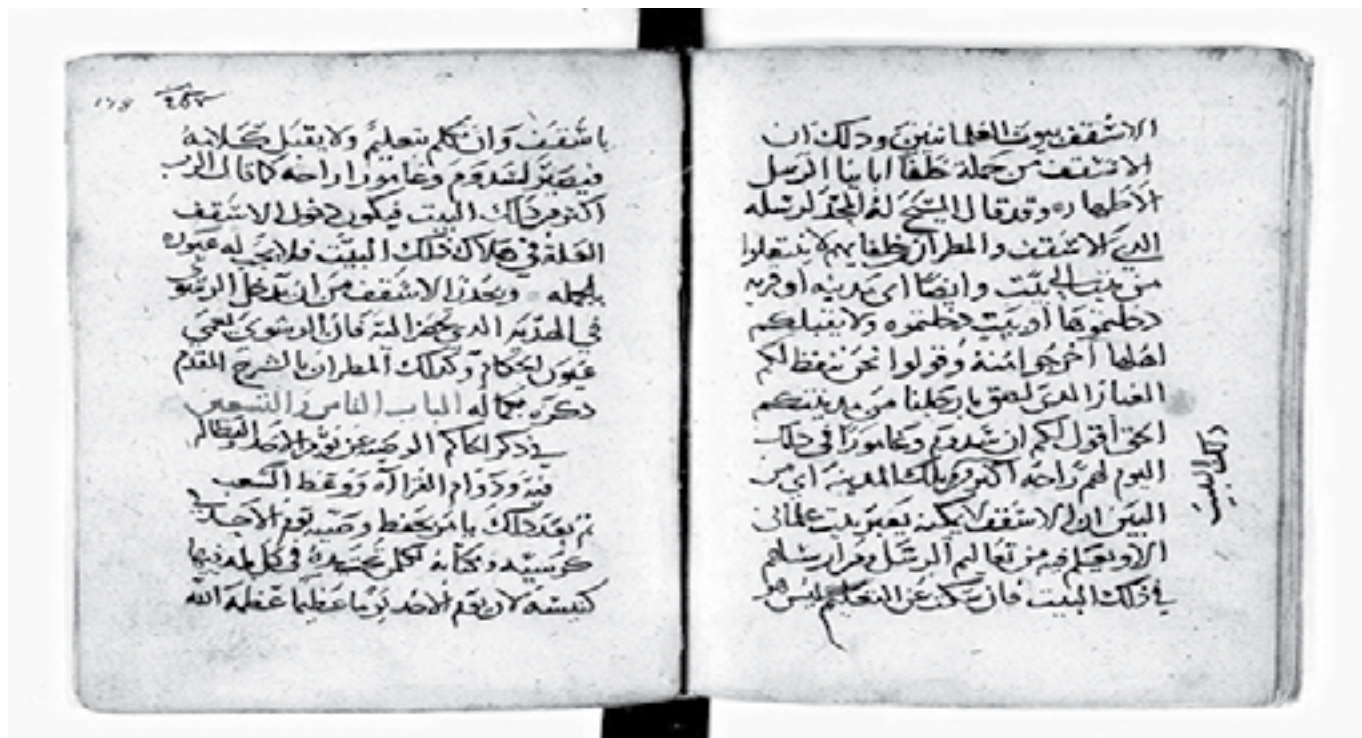 الاسقف بيوت العلمانيين وذلك ان
الاسقف من جملة خلفا ابابنا الرسل
الاطهار وقد قال المسيح له المجد لرسله
الدين الاسقف والمطران خلفايهم لا ينتقلوا
من بيت الى بيت وايضا اي مدينه او قريه
دخلتموها او بيت دخلتموه ولا يقبلكم
اهلها اخرجوا منه وقولوا نحن ننفظ لكم
الغبار الدى لصق بارجلنا من مدينتكم
الحق اقول لكم ان سدوم وغامورا فى ذلك
اليوم لهم راحه اكتر من تلك المدينه اي من
البين ان الاسقف لا يمكنه يعبر بيت علمانى
الا ويعلم فيه من تعاليم الرسل
في ذلك البيت فان سكت عن التعليم ليس هو
ذلك البيت
باسقف وان تكلم بتعليم ولا يقبل كلامه
فيصير لسدوم وغامورا راحه كما قال الرب
اكتر من ذلك البيت فيكون دخول الاسقف
العلة في هلاك ذلك البيت فلا يجب له عبوره
بالجمله ويحذر الاسقف من ان يدخل الرشوه
في الهديه الدى فان الرشوى تعمى
عيون الحكام وكدلك المطران بالشرح المقدم
دكره بكماله الباب التامن والتسعين
في ذكر احاكم الوصيه عن يوم الاحد
فيه ودوام القرااة ووعظ الشعب
تم بعد ذلك يامر بحفظ وصيه يوم الاحد في
كرسيه وبكتابه لكل فى كل بلد فيها
كنيسه لان يوم الاحد يوما عظيما عظمه الله